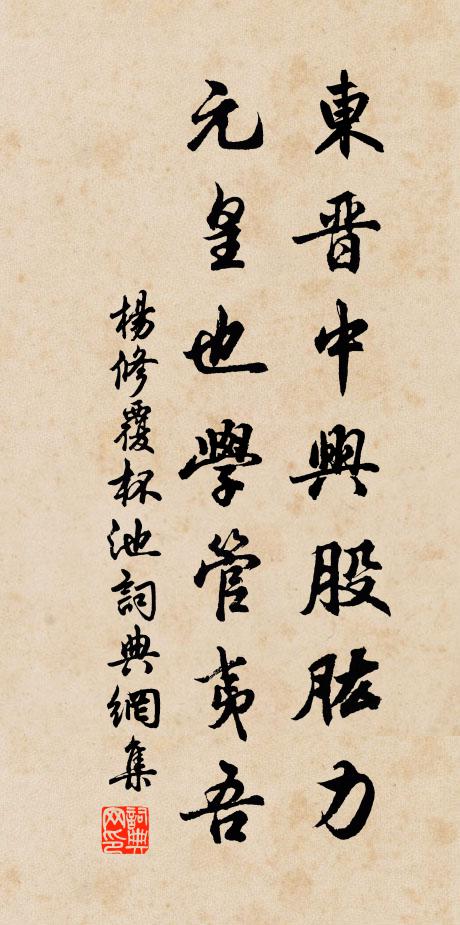 東晋中興股肱力
元皇也學管夷吾
楊修覆杯池詞典網集
詞典網印